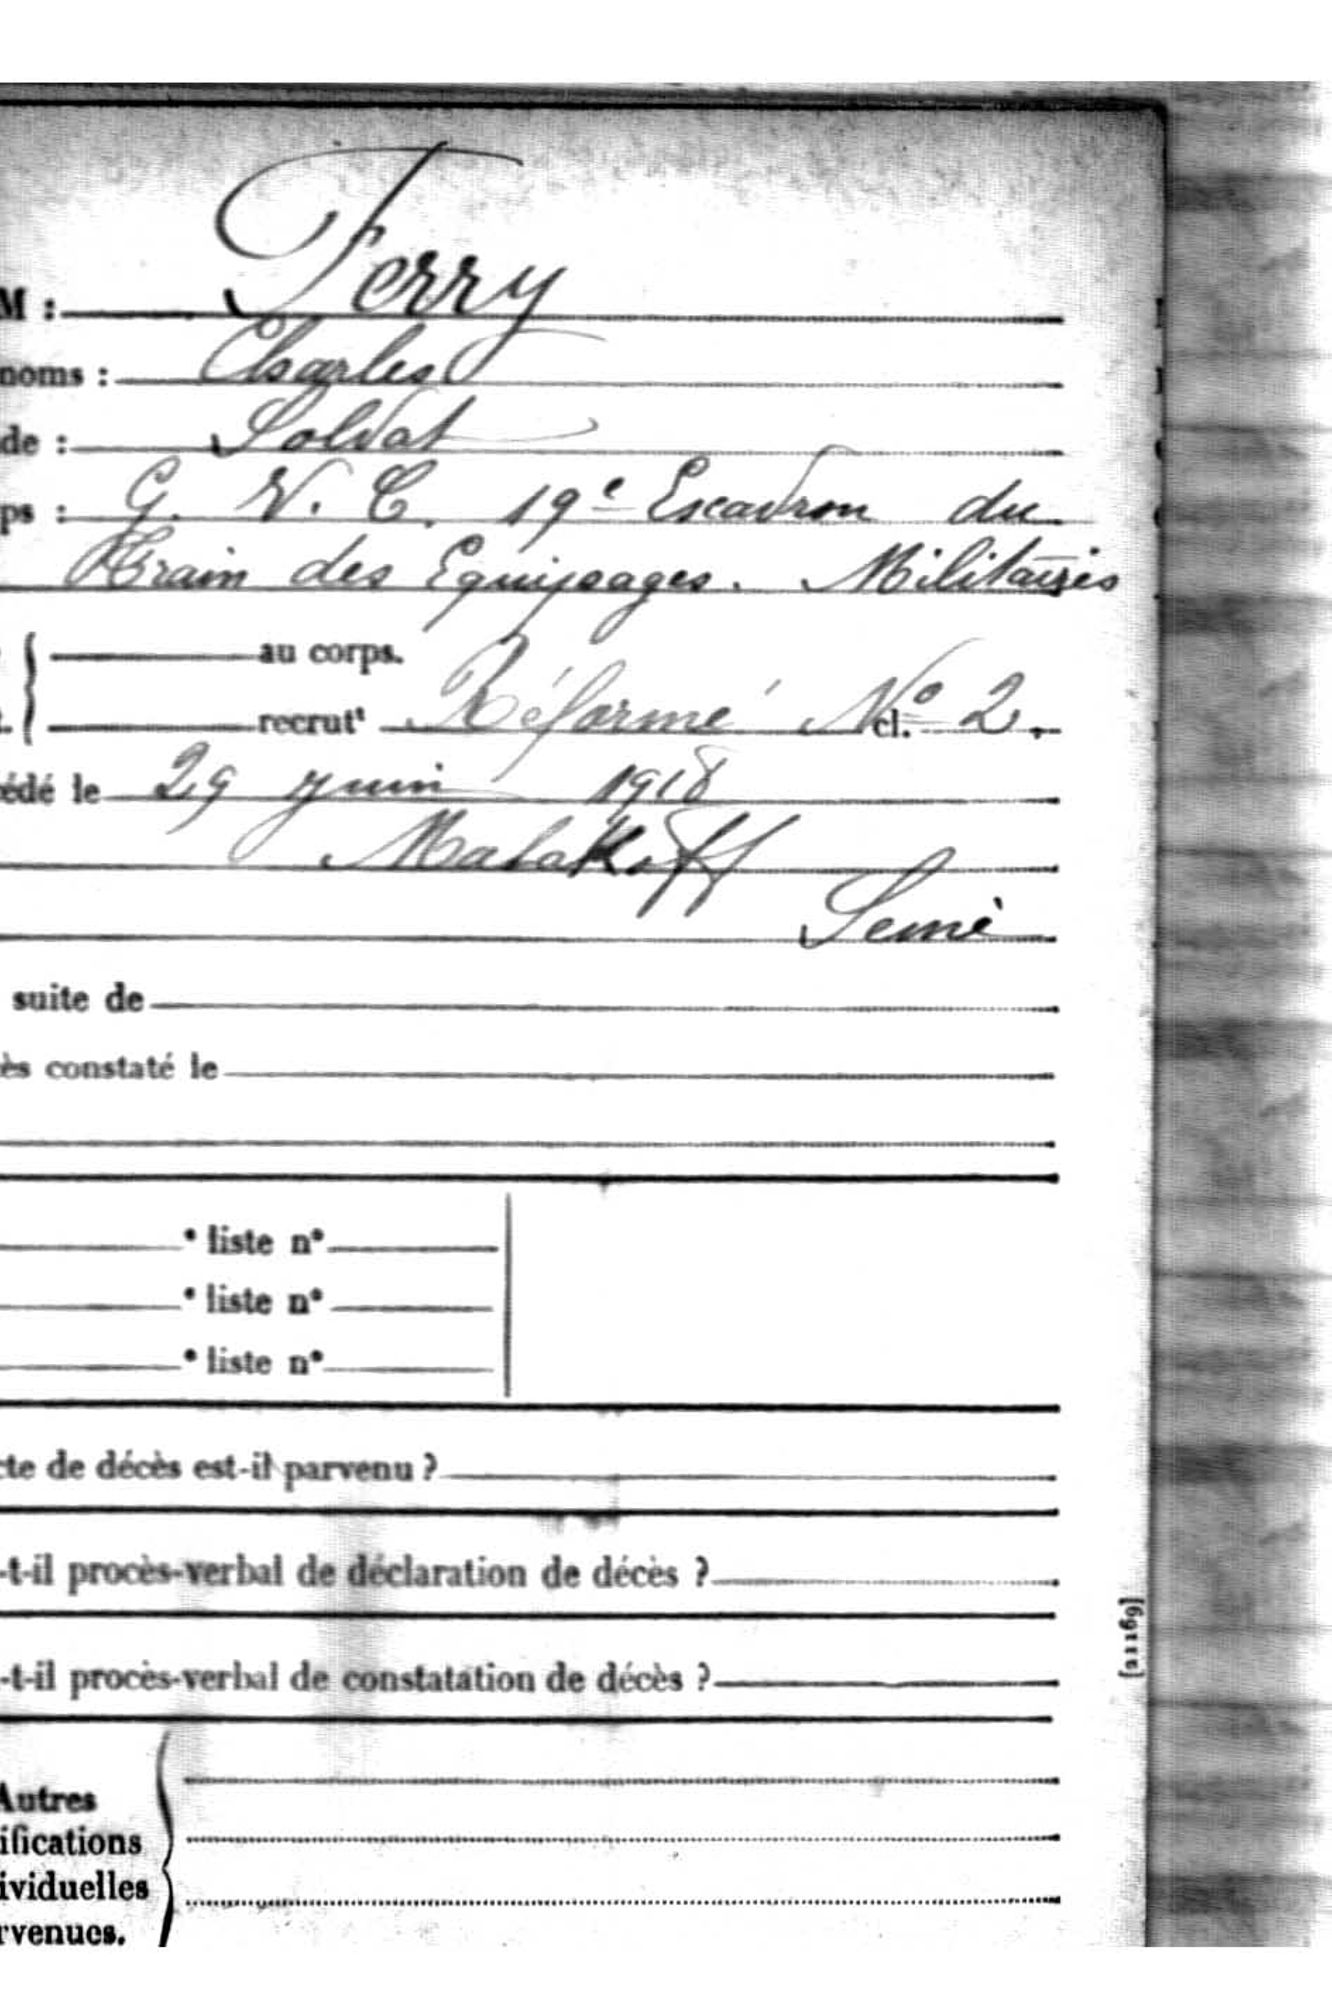 M : Ferry
noms : Charles
de : Soldat
ps : G. V. C. 19e Escadron du
Train des Equipages. Militaires
au corps.
recrutt Réformé No 2. cl.
édé le 29 juin 1918
Malakoff
Seine
suite de
ès constaté le
liste n°
liste n°
liste n°
cte de décès est-il parvenu ?
-t-il procès-verbal de déclaration de décès ?
-t-il procès-verbal de constatation de décès ?
Autres
ifications
ividuelles
rvenues.
[1169]